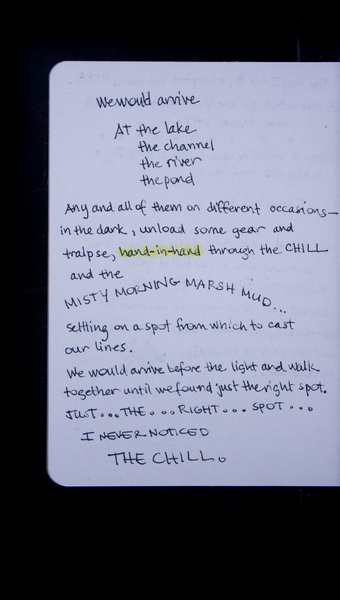 We would arrive
At the lake
the channel
the river
the pond
Any and all of them on different occasions—
in the dark, unload some gear and
tralpse, hand-in-hand through the CHILL
and the
MISTY MORNING MARSH MUD...
settling on a spot from which to cast
our lines.
We would arrive before the light and walk
together until we found just the right spot.
JUST...THE...RIGHT...SPOT...
I NEVER NOTICED
THE CHILL.